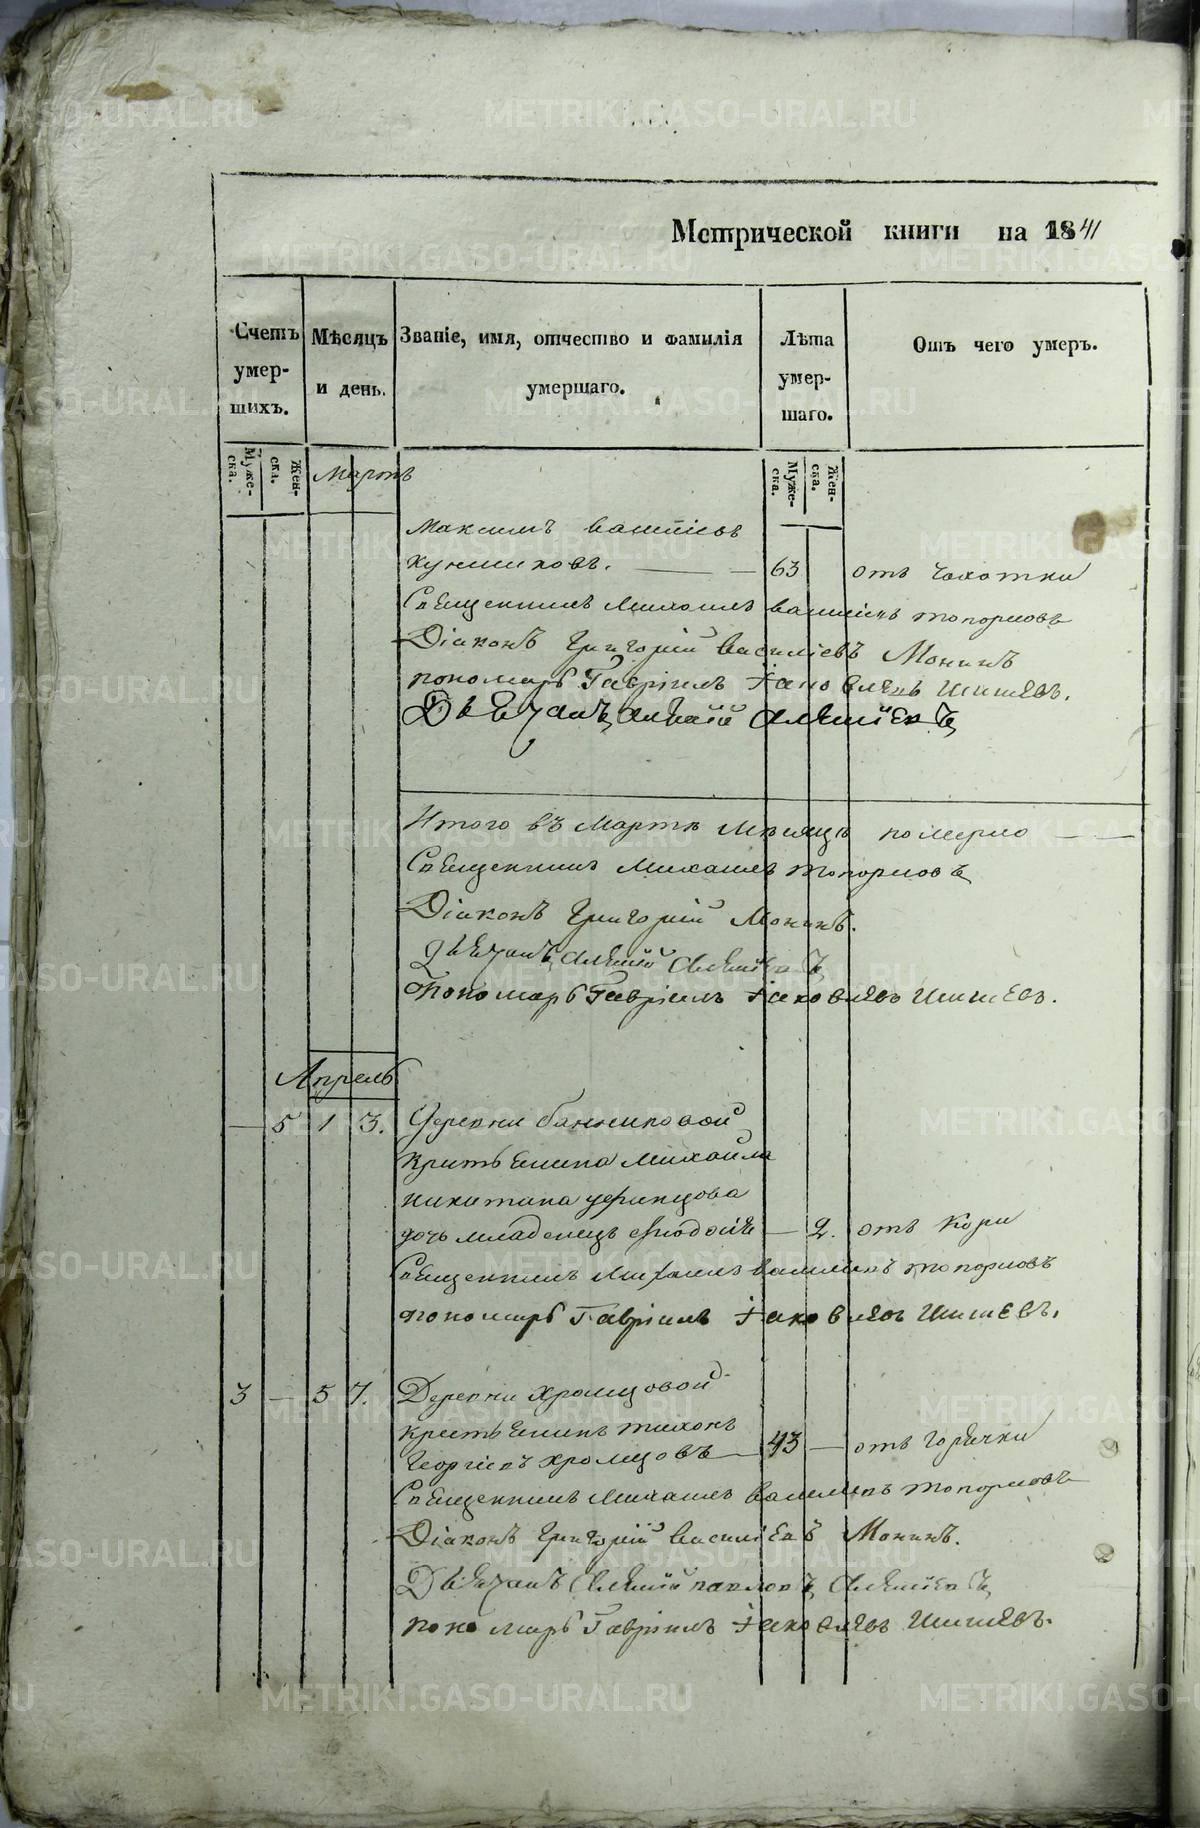 Метрической книги на 1841
Счетъ умер-шихъ.
Мѣсяцъ и день.
Званіе, имя, отчество и фамилія умершаго.
Лѣта умер-шаго.
Отъ чего умеръ.
Муже-ска.
Жен-ска.
Мартъ
Муже-ска.
Жен-ска.
Максимъ Васильевъ
63 отъ чахотки
Священникъ Михаилъ Васильевъ Топорковъ
Діаконъ Григорій Василіевъ Мокинъ
пономарь Гавріилъ Іаковлевъ Шишевъ.
Дьячокъ Алексій
Итого въ Мартѣ Мѣсяцѣ померло
Священникъ Михаилъ Топорковъ
Діаконъ Григорій Мокинъ.
Дьячокъ Алексій
Пономарь Гавріилъ Іаковлевъ Шишевъ.
Апрель
— 5 1 3. Деревни Банниковой
Крестьянина Михаила
Никитина
дочь младенецъ Феодосія — 2. отъ Кори
Священникъ Михаилъ Васильевъ Топорковъ
пономарь Гавріилъ Іаковлевъ Шишевъ.
3 — 5 7. Деревни Хромцовой
крестьянинъ Тихонъ
Георгіевъ Хромцовъ — 43 — отъ горячки
Священникъ Михаилъ Васильевъ Топорковъ
Діаконъ Григорій Василіевъ Мокинъ.
Дьячокъ Алексій Павловъ
пономарь Гавріилъ Іаковлевъ Шишевъ.
METRIKI.GASO-URAL.RU